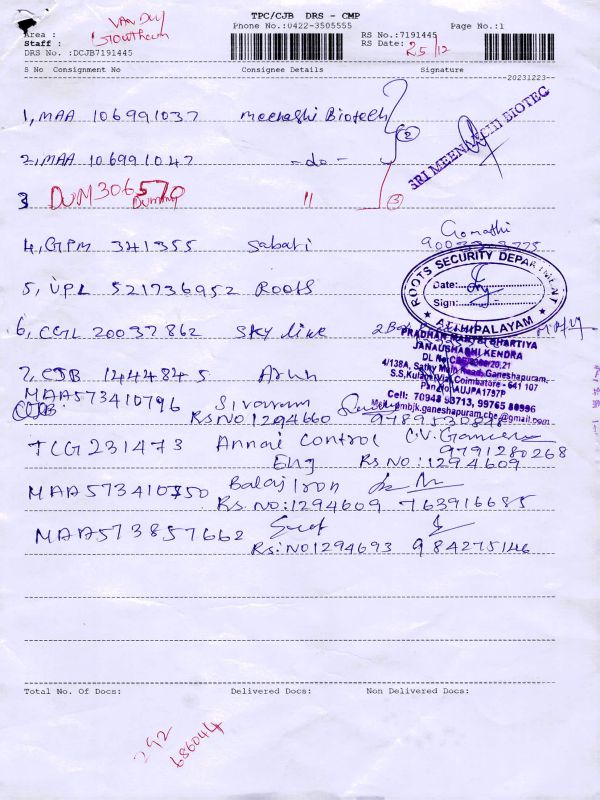 TPC/CJB DRS - CMP
Phone No.:0422-3505555
Page No.:1
Area :
VAN DUY
Growtherm
Staff :
RS No.:7191445
RS Date: 25/12
DRS No. :DCJB7191445
S No Consignment No Consignee Details Signature
20231223--
1, MAA 106991037 Meenashi Biotech
2, MAA 106991047 -do-
3 DUM306570 "
Dummy
SRI MEENAKCHI BIOTEC
4, GPM 341355 Sabari Gomathi
5, UPL 521736952 Roots
ROOTS SECURITY DEPARTMENT
Date:
Sign:
ATHIPALAYAM
6, CGL 20037862 Sky line
PRADHAN MANTRI BHARTIYA
JANAUSHADHI KENDRA
4/138A, Sathy Main Road, Ganeshapuram,
S.S.Kulam(Via), Coimbatore - 641 107
Pan No:AUJPA1797P
Cell: 70948 93713, 99765 80996
7, CJB 1444845 Arun
MAA573410796 Sivaram
CJB RS NO 1294660
TCG231473 Annai Control
Eng RS NO: 1294609 9791280268
MAA573410350 Balaji Iron
Rs. NO: 1294609 763916685
MAA573857662
Rs: NO 1294693 984275146
Total No. Of Docs: Delivered Docs: Non Delivered Docs:
292
686044